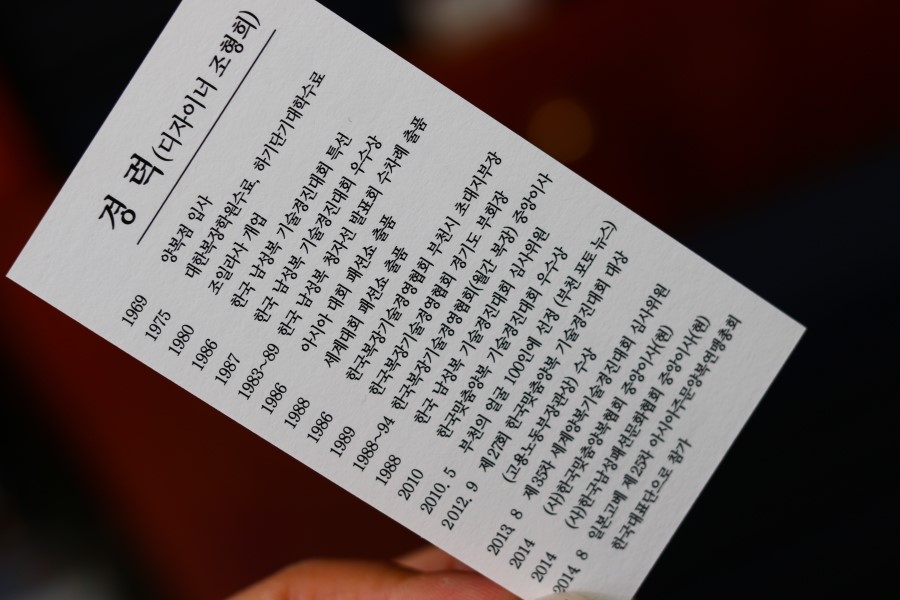 경 력 (디자이너 조형희)
1969 양복점 입사
1975 대한복장학원수료, 하기단기대학수료
1980 조일라사 개업
1986 한국 남성복 기술경진대회 특선
1987 한국 남성복 기술경진대회 우수상
1983~89 한국 남성복 정자선 발표회 수차례 출품
1986 아시아 대회 패션쇼 출품
1988 세계대회 패션쇼 출품
1986 한국복장기술경영협회 부천시 초대지부장
1989 한국복장기술경영협회 경기도 부회장
1988~94 한국복장기술경영협회(월간 복장) 중앙이사
1988 한국 남성복 기술경진대회 심사위원
2010 한국맞춤양복 기술경진대회 우수상
2010. 5 부천의 얼굴 100인에 선정 (부천 포토뉴스)
2012. 9 제27회 한국맞춤양복 기술경진대회 대상
(고용노동부장관상) 수상
2013. 8 제35차 세계양복기술경진대회 심사위원
2014 (사)한국맞춤양복협회 중앙이사(현)
2014 (사)한국남성패션문화협회 중앙이사(현)
2014 8 일본고베 제25차 아시아주문양복연맹총회
한국대표단으로 참가